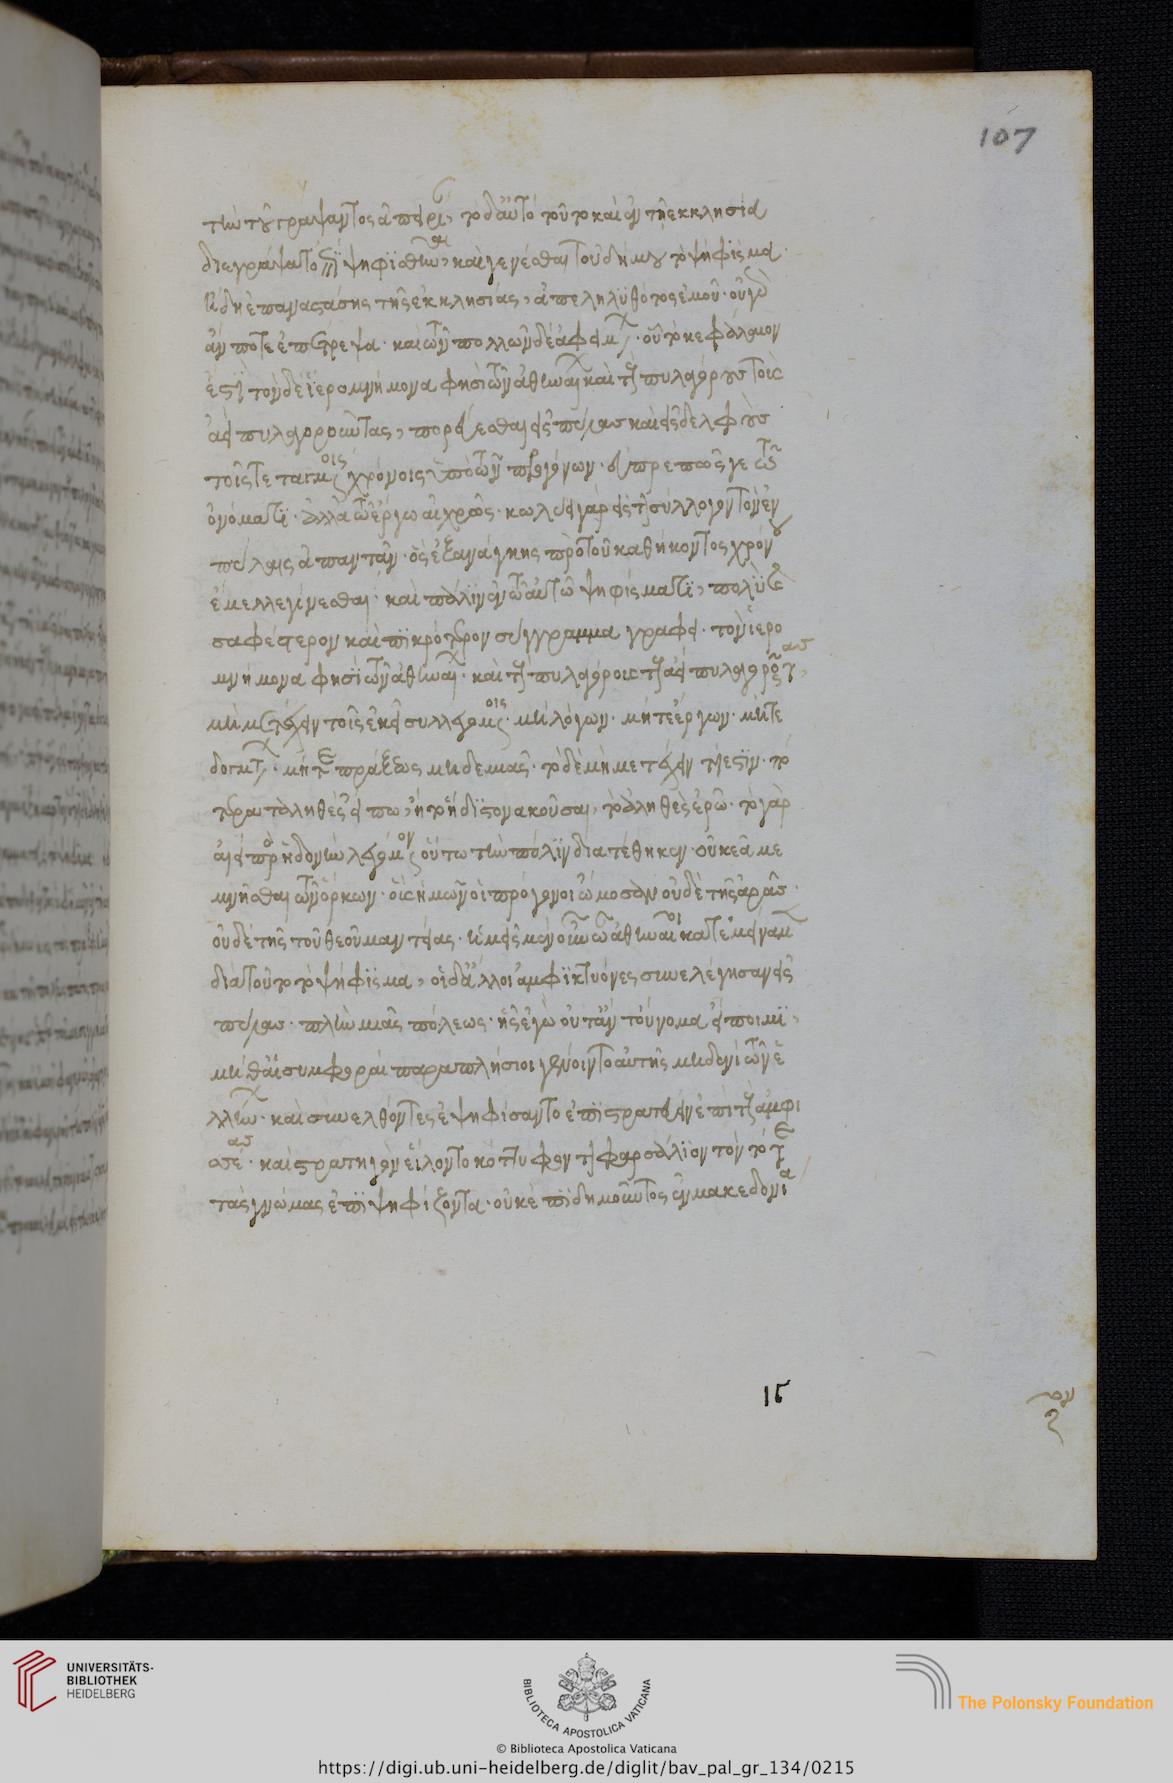 107
τὴν τοῦ γράψαντος ἀπειρίαν, τὸ δ' αὐτὸ τοῦτο καὶ ἐν τῇ ἐκκλησίᾳ
διεγράψατο ἐπιψηφισθῆναι, καὶ γενέσθαι τοῦ δήμου τὸ ψήφισμα
ἤδη ἐπαναστάσης τῆς ἐκκλησίας, ἀπεληλυθότος ἐμοῦ· οὐ γὰρ
ἄν ποτε ἐπέτρεψα· καὶ τῶν πολλῶν δὲ ἀφειμένων· οὗ τὸ κεφάλαιον
ἐστί· τὸν δὲ ἱερομνήμονα φησὶ τῶν ἀθηναίων καὶ τοὺς πυλαγόρους τοὺς
ἀεὶ πυλαγοροῦντας, πορεύεσθαι εἰς πύλας καὶ εἰς δελφοὺς
τοῖς τεταγμένοις χρόνοις ὑπὸ τῶν προγόνων· εὐπρεπῶς γε τῷ
ὀνόματι· ἀλλὰ τῷ ἔργῳ αἰσχρῶς· κωλύει γὰρ εἰς τὸν σύλλογον τὸν ἐν
πύλαις ἀπαντᾶν· ὃς ἐξ ἀνάγκης πρὸ τοῦ καθήκοντος χρόνου
ἔμελλε γίνεσθαι· καὶ πάλιν ἐν τῷ αὐτῷ ψηφίσματι, πολὺ καὶ
σαφέστερον καὶ πικρότερον σύγγραμμα γράφει· τὸν ἱερο
μνήμονα φησὶ τῶν ἀθηναίων· καὶ τοὺς πυλαγόρους τοὺς ἀεὶ πυλαγοροῦντας,
μὴ μετέχειν τοῖς ἐκεῖ συλλεγομένοις· μὴ λόγων· μήτε ἔργων· μήτε
δογμάτων· μήτε πράξεως μηδεμιᾶς· τὸ δὲ μὴ μετέχειν τί ἐστιν· πό
τερα τἀληθὲς εἴπω, ἢ τὸ ἥδιστον ἀκοῦσαι, τὸ ἀληθὲς ἐρῶ· τὸ γὰρ
ἀεὶ πρὸς ἡδονὴν λεγόμενον οὕτω τὴν πόλιν διατέθηκεν· οὐκ ἐᾷ με
μνῆσθαι τῶν ὅρκων· οἷς ἡμῶν οἱ πρόγονοι ὤμοσαν οὐδὲ τῆς ἀρᾶς·
οὐδὲ τῆς τοῦ θεοῦ μαντείας· ἡμεῖς μὲν οὖν ὦ ἀθηναῖοι κατεμείναμεν
διὰ τοῦτο τὸ ψήφισμα, οἱ δ' ἄλλοι ἀμφικτύονες συνελέγησαν εἰς
πύλας· πλὴν μιᾶς πόλεως· ἧς ἐγὼ οὔτ' ἂν τοὔνομα εἴποιμι,
μήθ' αἱ συμφοραὶ παραπλήσιοι γένοιντο αὐτῆς μηδενὶ τῶν ἑ
λλήνων· καὶ συνελθόντες ἐψηφίσαντο ἐπιστρατεύειν ἐπὶ τοὺς ἀμφι
σσέας· καὶ στρατηγὸν εἵλοντο κόττυφον τὸν φαρσάλιον τὸν τότε
τὰς γνώμας ἐπιψηφίζοντα· οὐκ ἐπιδημοῦντος ἐν μακεδονίᾳ
16
UNIVERSITÄTS-
BIBLIOTHEK
HEIDELBERG
BIBLIOTECA APOSTOLICA VATICANA
The Polonsky Foundation
© Biblioteca Apostolica Vaticana
https://digi.ub.uni-heidelberg.de/diglit/bav_pal_gr_134/0215